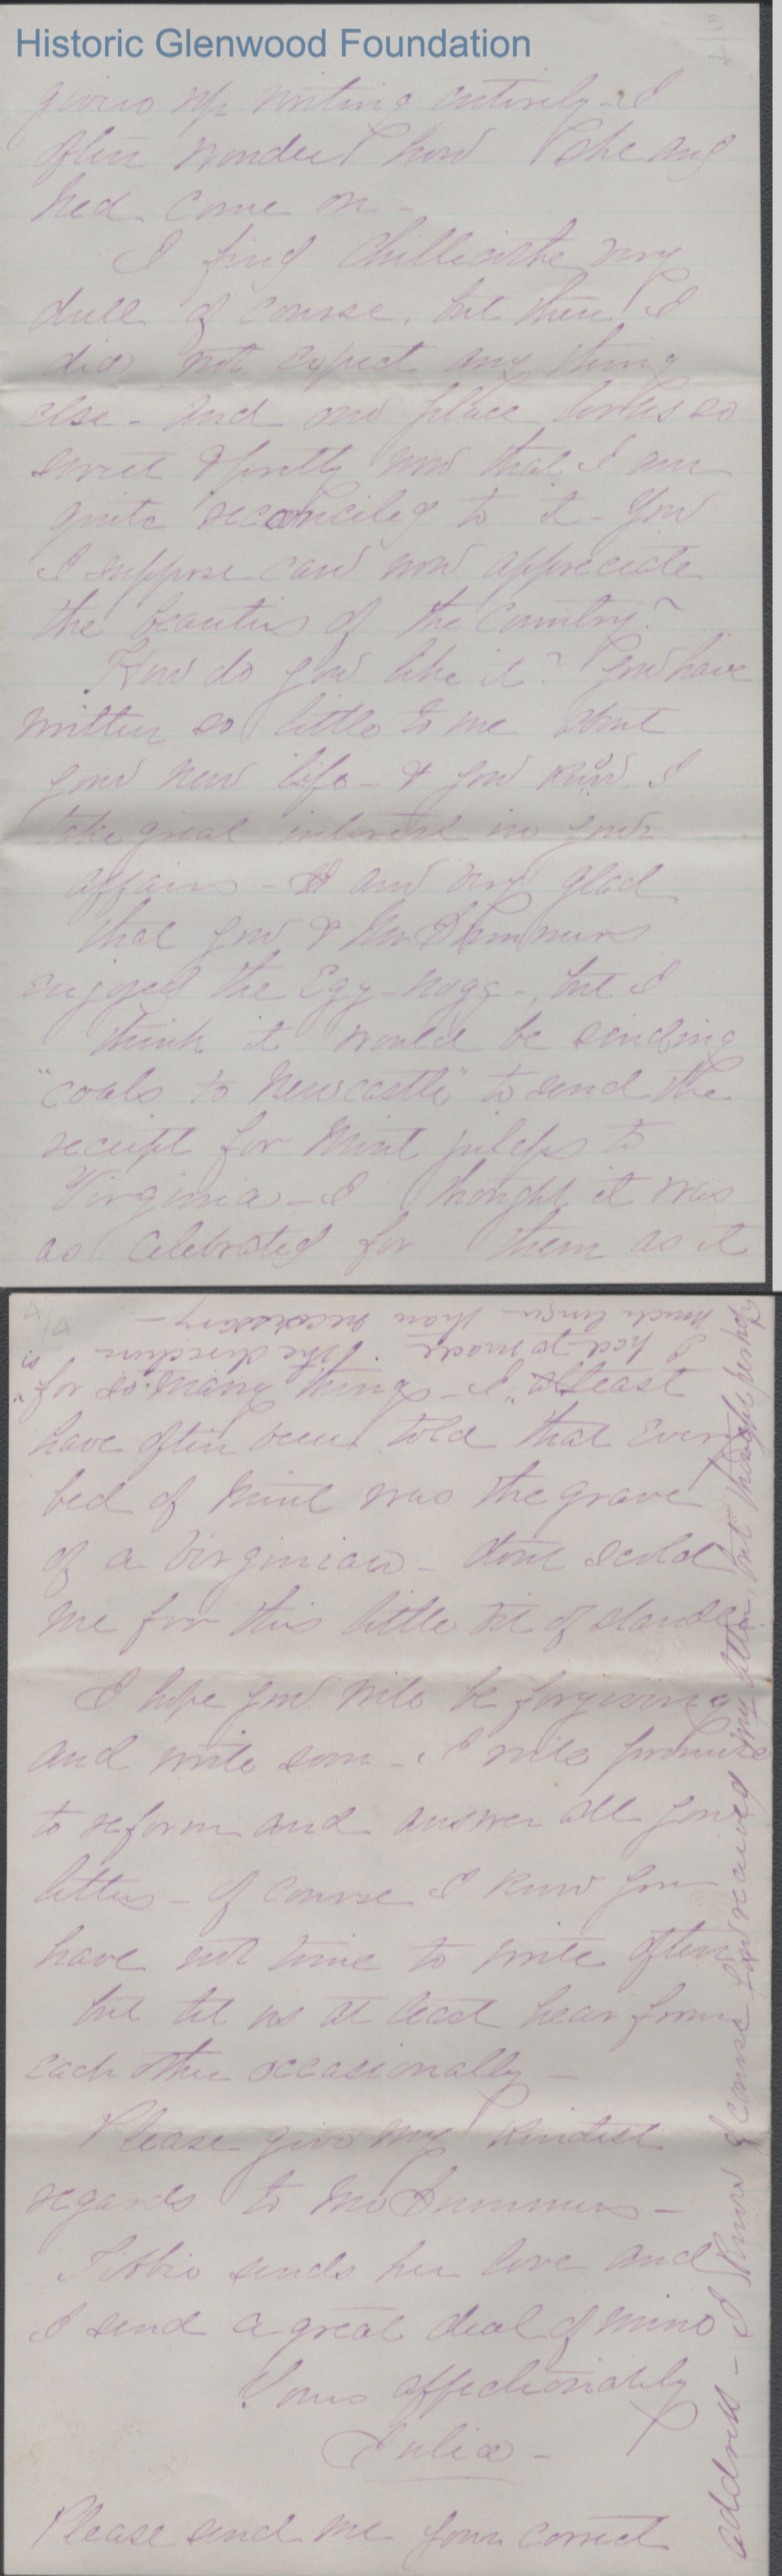 Historic Glenwood Foundation
3
giving up writing entirely - I
often wonder how she and
Ned come on -
I find Chillicothe very
dull of course, but then I
did not expect any thing
else - and our place looks so
sweet & pretty now that I am
quite reconciled to it - You
I suppose can now appreciate
the beauties of the country?
How do you like it? You have
written so little to me about
your new life - & you know I
take great interest in your
affairs - I am very glad
that you & Mr Summers
enjoyed the Egg-nogg -, but I
think it would be sending
"coals to Newcastle" to send the
receipt for Mint juleps to
Virginia - I thought it was
as celebrated for them as it
is
"for so many things - I" at least
have often been told that every
bed of mint was the grave
of a Virginian - dont scold
me for this little bit of slander.
I hope you will be forgiving
and write soon - I will promise
to reform and answer all your
letters - of course I know you
have not time to write often
but let us at least hear from
each other occasionally -
Please give my kindest
regards to Mr Summers -
Tibbie sends her love and
I send a great deal of mine
Yours affectionately
Julia -
Please send me your correct
address - I know of course you received my letter, but thought perhaps
I had to made the direction
much longer than necessary -